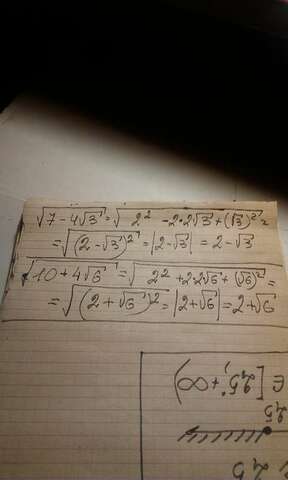 √7 - 4√3 = √2² - 2·2√3 + (√3)² =
= √(2 - √3)² = |2 - √3| = 2 - √3
√10 + 4√6 = √2² + 2·2√6 + (√6)² =
= √(2 + √6)² = |2 + √6| = 2 + √6
∈ [2,5; +∞)
2,5
2,5